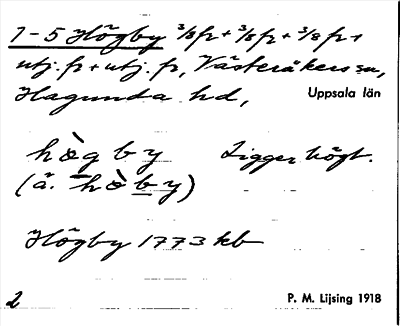 1-5 Högby 3/8 fr + 3/8 fr + 3/8 fr +
utj. fr + utj. fr, Västeråkers sn,
Hagunda hd, Uppsala län
hø̀gby Ligger högt.
(ä. hø̀by)
Högby 1773 kb
2 P. M. Lijsing 1918